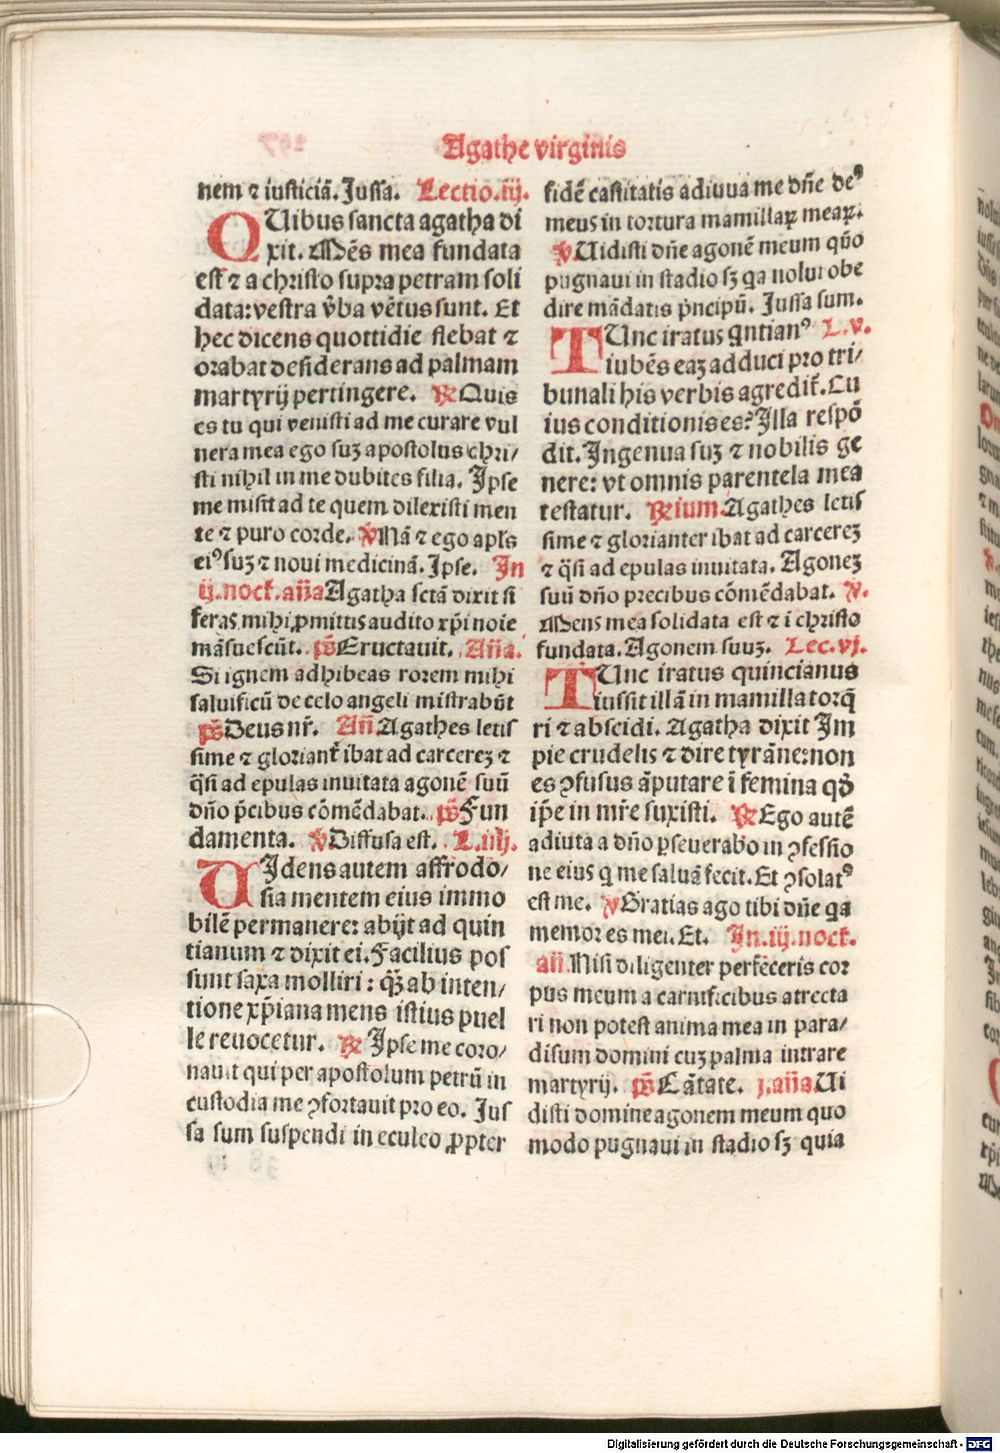 Agathe virginis
nem ⁊ iusticiã. Jussa. Lectio.iij.
QUibus sancta agatha di
xit. Mẽs mea fundata
est ⁊ a christo supra petram soli
data: vestra v̾ba vẽtus sunt. Et
hec dicens quottidie flebat ⁊
orabat desiderans ad palmam
martyrij pertingere. ℟ Quis
es tu qui venisti ad me curare vul
nera mea ego suꝫ apostolus chri/
sti nihil in me dubites filia. Ipse
me misit ad te quem dilexisti men
te ⁊ puro corde. ℣ Nã ⁊ ego apl̃s
eiꝰ suꝫ ⁊ noui medicinã. Ipse. In
ij. noct̃. añaAgatha sctã dixit si
feras mihi ꝓmittis audito xp̃i noĩe
mãsuescũt. ps̃ Eructauit. Aña.
Si ignem adhibeas rorem mihi
saluificũ de celo angeli mistrabũt
ps̃ Deus nr̃. Añ Agathes letis
sime ⁊ gloriant̃ ibat ad carcereꝫ ⁊
q̃si ad epulas inuitata agonẽ suũ
dño p̃cibus cõmẽdabat. ps̃ Fun
damenta. ℣ Diffusa est. L.iiij.
UJdens autem affrodo/
sia mentem eius immo
bilẽ permanere: abijt ad quin
tianum ⁊ dixit ei. Facilius pos
sunt saxa molliri: q̃ꝫ ab inten/
tione xp̃iana mens istius puel
le reuocetur. ℟ Ipse me coro/
nauit qui per apostolum petrũ in
custodia me ꝯfortauit pro eo. Jus
sa sum suspendi in eculeo ꝓpter
fidẽ castitatis adiuua me dñe deꝰ
meus in tortura mamillaꝝ meaꝝ.
℣ Uidisti dñe agonẽ meum quõ
pugnaui in stadio sꝫ qa nolui obe
dire mãdatis p̃ncipũ. Jussa sum.
TUnc iratus qntianꝰ L.v.
iubẽs eaꝫ adduci pro tri/
bunali his verbis agredit̃. Cu
ius conditionis es? Illa respõ
dit. Ingenua suꝫ ⁊ nobilis ge
nere: vt omnis parentela mea
testatur. ℟ium. Agathes letis
sime ⁊ glorianter ibat ad carcereꝫ
⁊ q̃si ad epulas inuitata. Agoneꝫ
suũ dño precibus cõmẽdabat. ℣.
Mens mea solidata est ⁊ ĩ christo
fundata. Agonem suuꝫ. Lec.vj.
TUnc iratus quincianus
iussit illã in mamilla torq̃
ri ⁊ abscidi. Agatha dixit Im
pie crudelis ⁊ dire tyrãne: non
es ꝯfusus ãputare ĩ femina qď
ip̃e in mr̃e suxisti. ℟ Ego autẽ
adiuta a dño ꝑseuerabo in ꝯfessio
ne eius q me saluã fecit. Et ꝯsolatꝰ
est me. ℣ Gratias ago tibi dñe qa
memor es mei. Et. In.iij.noct̃.
añ. Nisi diligenter perfeceris cor
pus meum a carnificibus atrecta
ri non potest anima mea in para/
disum domini cuꝫ palma intrare
martyrij. ps̃ Cãtate. j. aña Ui
disti domine agonem meum quo
modo pugnaui in stadio sꝫ quia
Digitalisierung gefördert durch die Deutsche Forschungsgemeinschaft - DFG